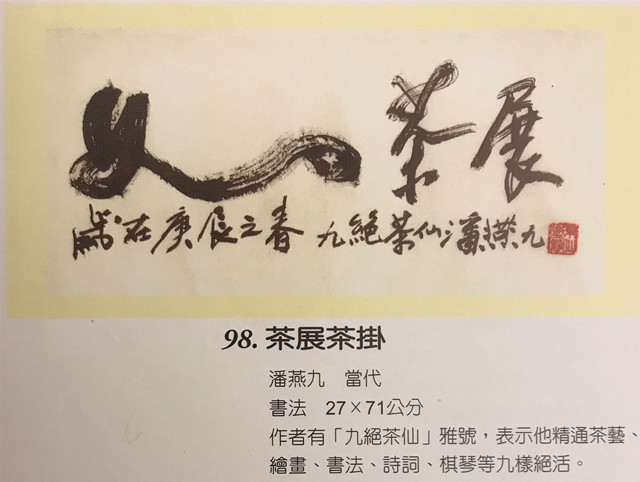 茶展
歲在庚辰之春 九絕茶仙潘燕九
98. 茶展茶掛
潘燕九 當代
書法 27×71公分
作者有「九絕茶仙」雅號，表示他精通茶藝、
繪畫、書法、詩詞、棋琴等九樣絕活。